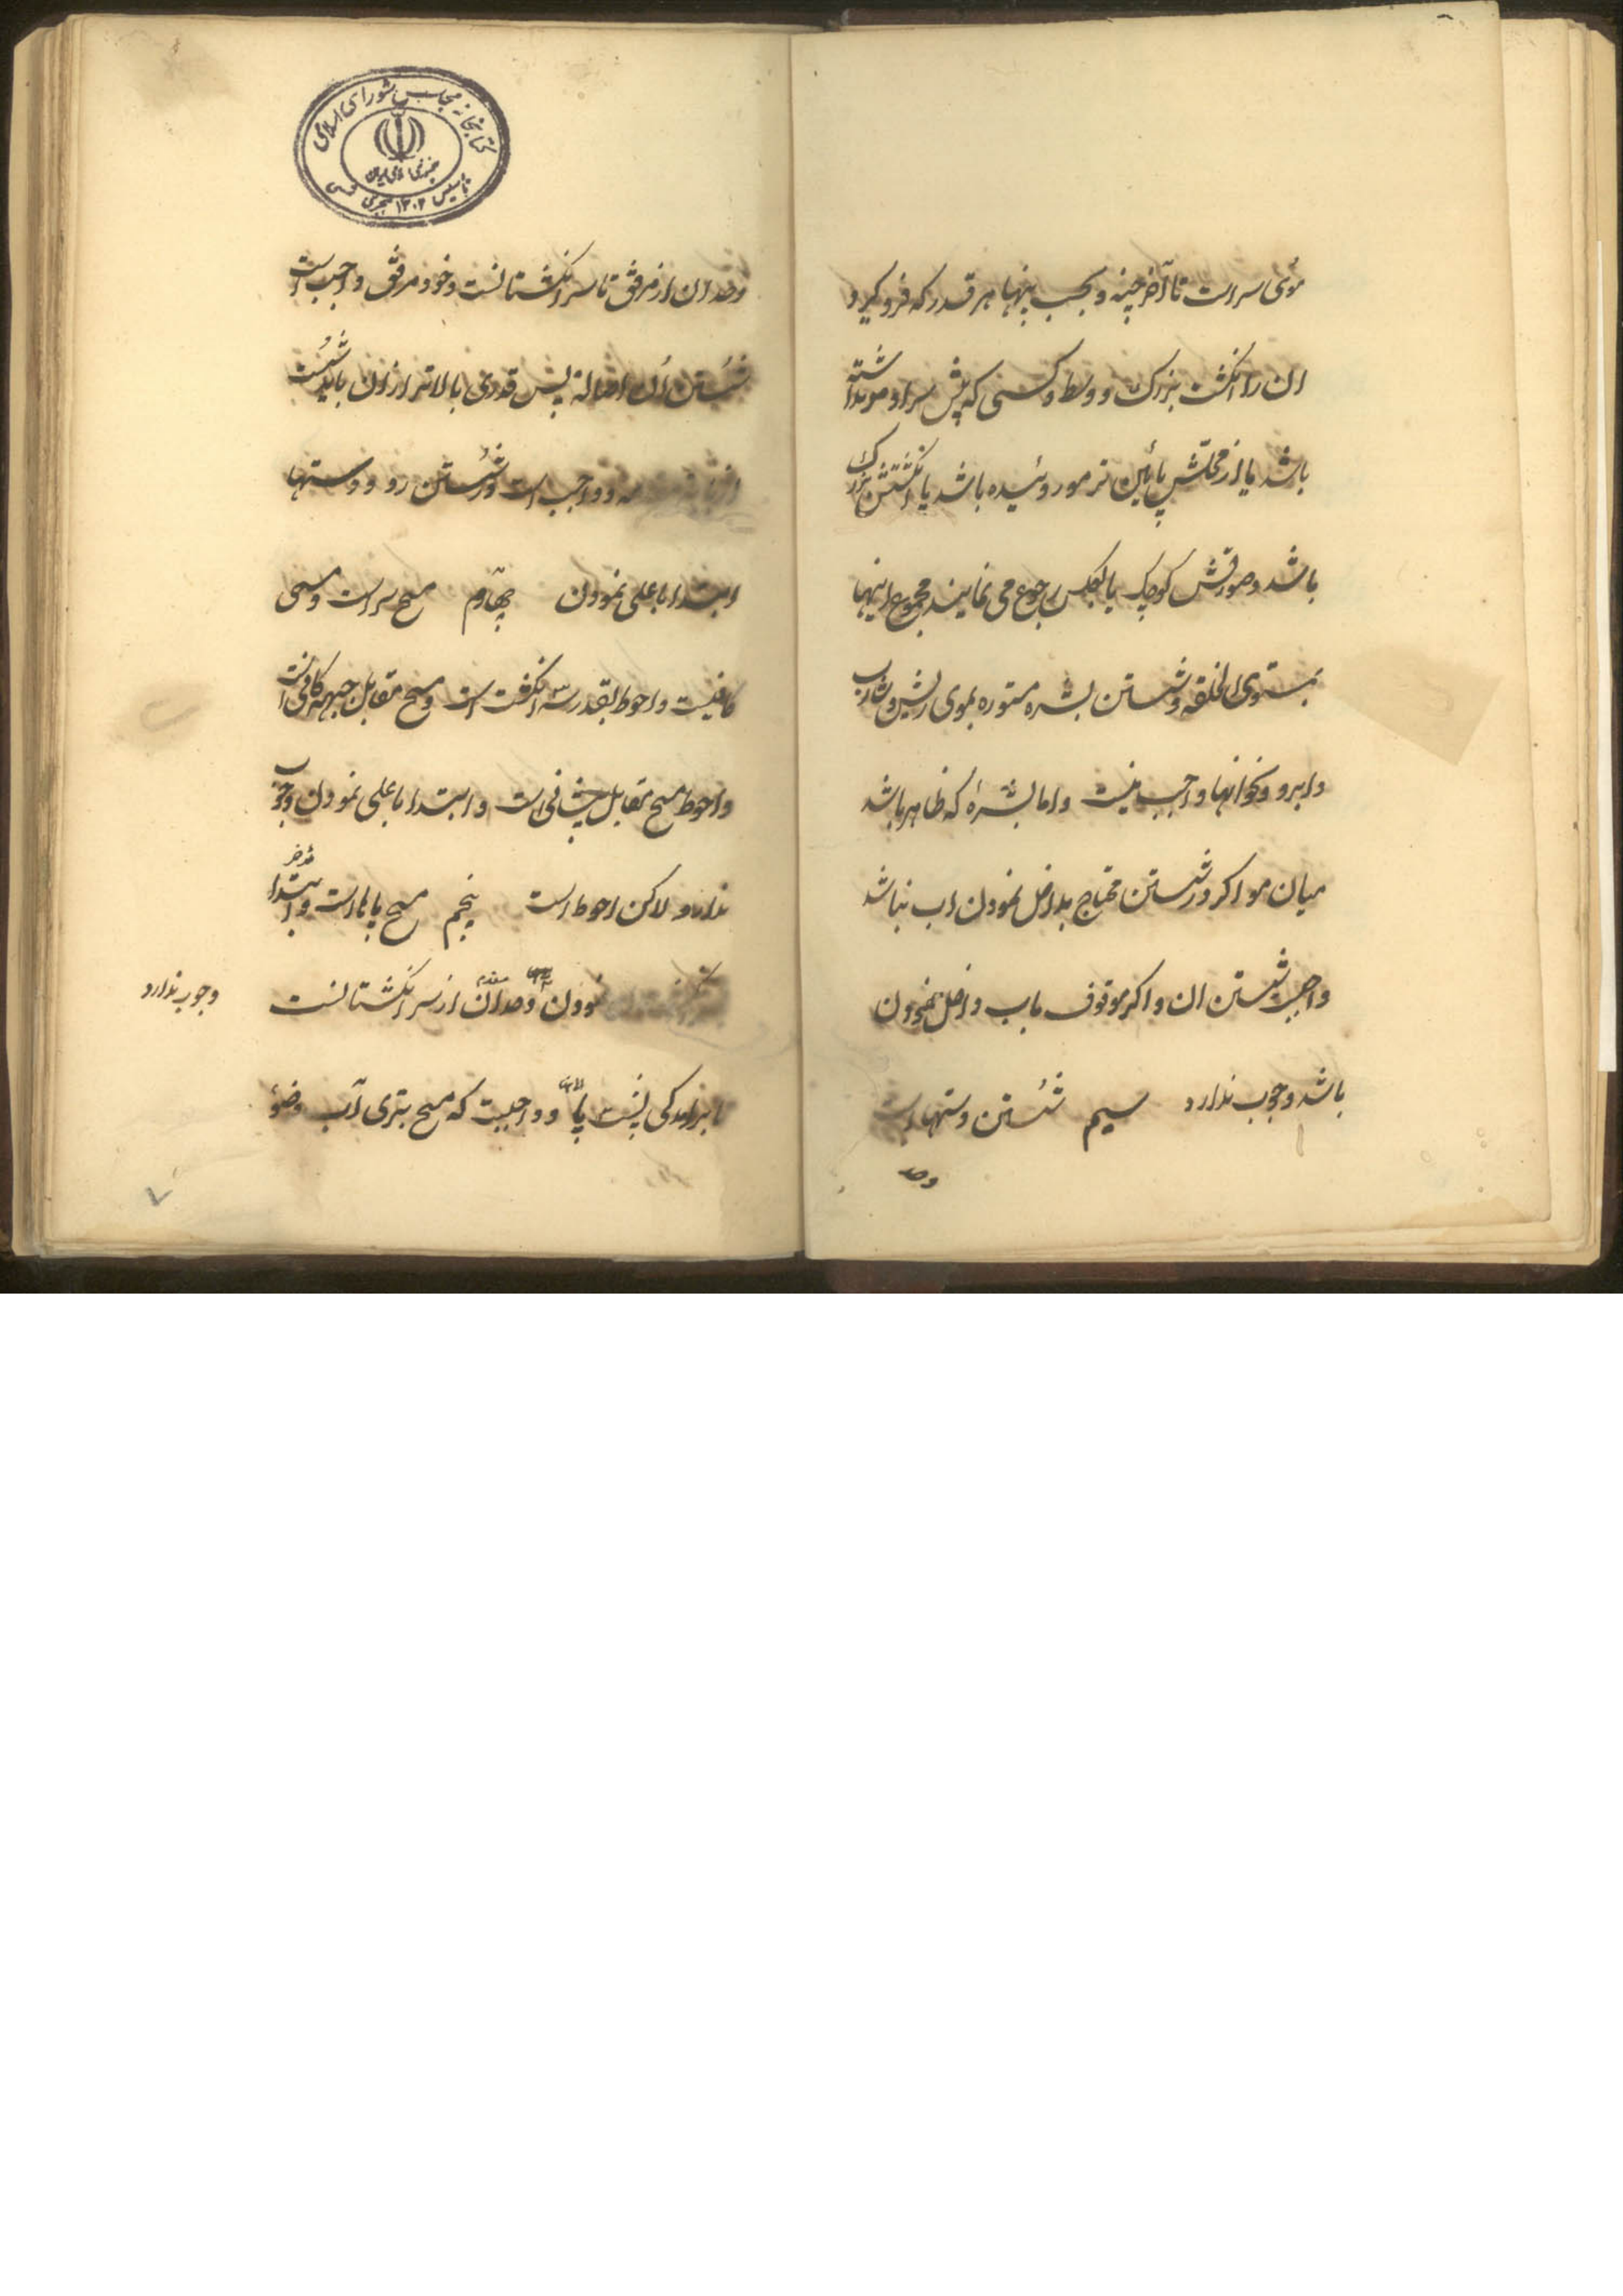 موی سر است تا آخر چنه و بحسب پنها هر قدر که فرو گیرد
ان را انگشت بزرک و وسط و کسی که پیش سر او مو نداشته
باشد یا از محلش پائین تر مو روئیده باشد یا انگشتش بزرک
باشد و صورتش کوچک یا بالعکس رجوع می نمایند مجموع اینها
بمستوی الخلقه و شستن بشره مستوره بموی ریش و شارب
و ابرو و نحو انها واجب نیست و اما بشرهٔ که ظاهر باشد
میان مو اگر در شستن محتاج بداخل نمودن اب نباشد
واجبست شستن ان و اگر موقوف باب داخل نمودن
باشد وجوب ندارد سیم شستن دستها است
وحد
کتابخانه مجلس شورای اسلامی
تاسیس ۱۳۰۲ هجری شمسی
وحد ان از مرفق تا سر انگشتانست و خود مرفق واجب است
شستن ان اصالة پس قدری بالاتر از ان باید شست
و واجب است در شستن رو و دستها
ابتدا باعلی نمودن چهارم مسح سر است و مسمی
کافیست و احوط بقدر سه انگشت است و مسح مقابل جبهه کافی است
و احوط مسح مقابل پیشانی است و ابتدا باعلی نمودن وجوب
ندارد لاکن احوط است پنجم مسح پاها است و ابتدا
نمودن وحد ان از سر انگشتانست
وجوب ندارد
تا برامدگی پشت پا و واجبست که مسح بتری آب وضوء
۷